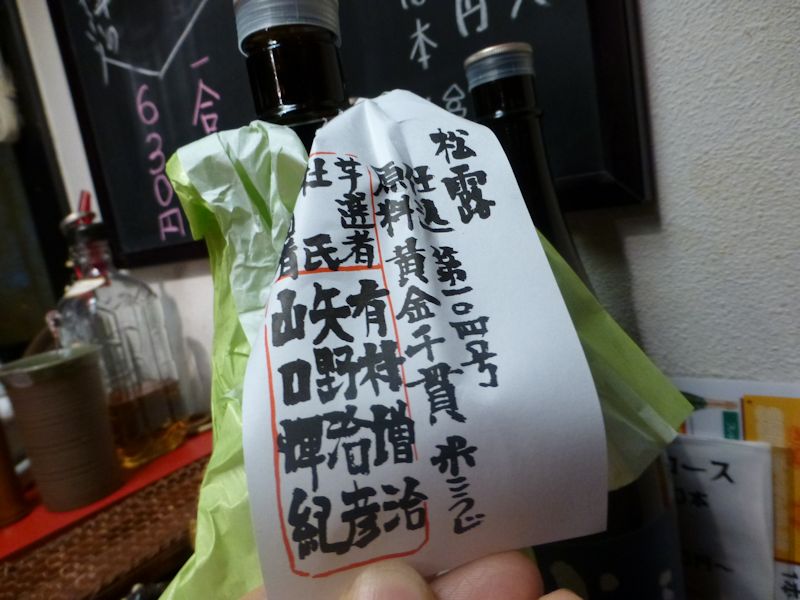 松露
仕込 第一〇四号
原料 黄金千貫 米こうじ
芋選者 有村増治
杜氏 矢野治彦
山口輝紀
一合
630円
コース